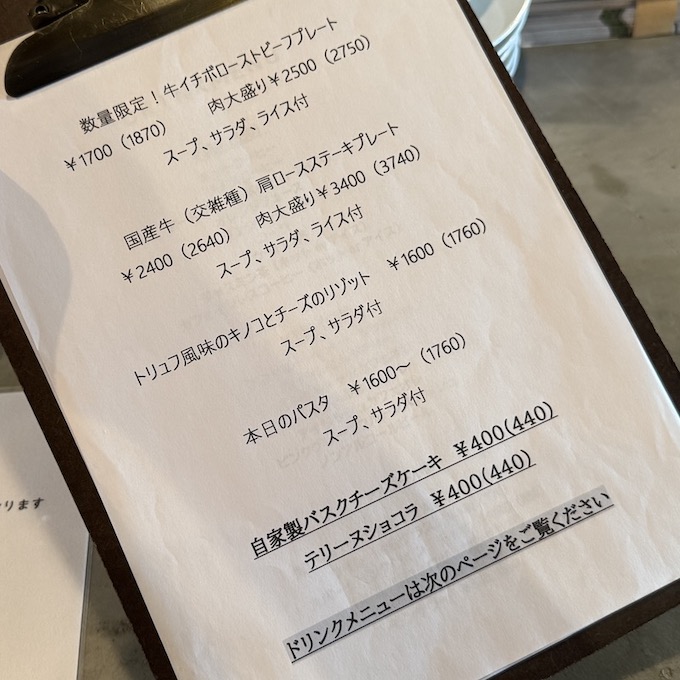 数量限定！牛イチボローストビーフプレート
￥1700（1870）　肉大盛り￥2500（2750）
スープ、サラダ、ライス付
国産牛（交雑種）肩ロースステーキプレート
￥2400（2640）　肉大盛り￥3400（3740）
スープ、サラダ、ライス付
トリュフ風味のキノコとチーズのリゾット　￥1600（1760）
スープ、サラダ付
本日のパスタ　￥1600～（1760）
スープ、サラダ付
自家製バスクチーズケーキ　￥400(440)
テリーヌショコラ　￥400(440)
ドリンクメニューは次のページをご覧ください
ります